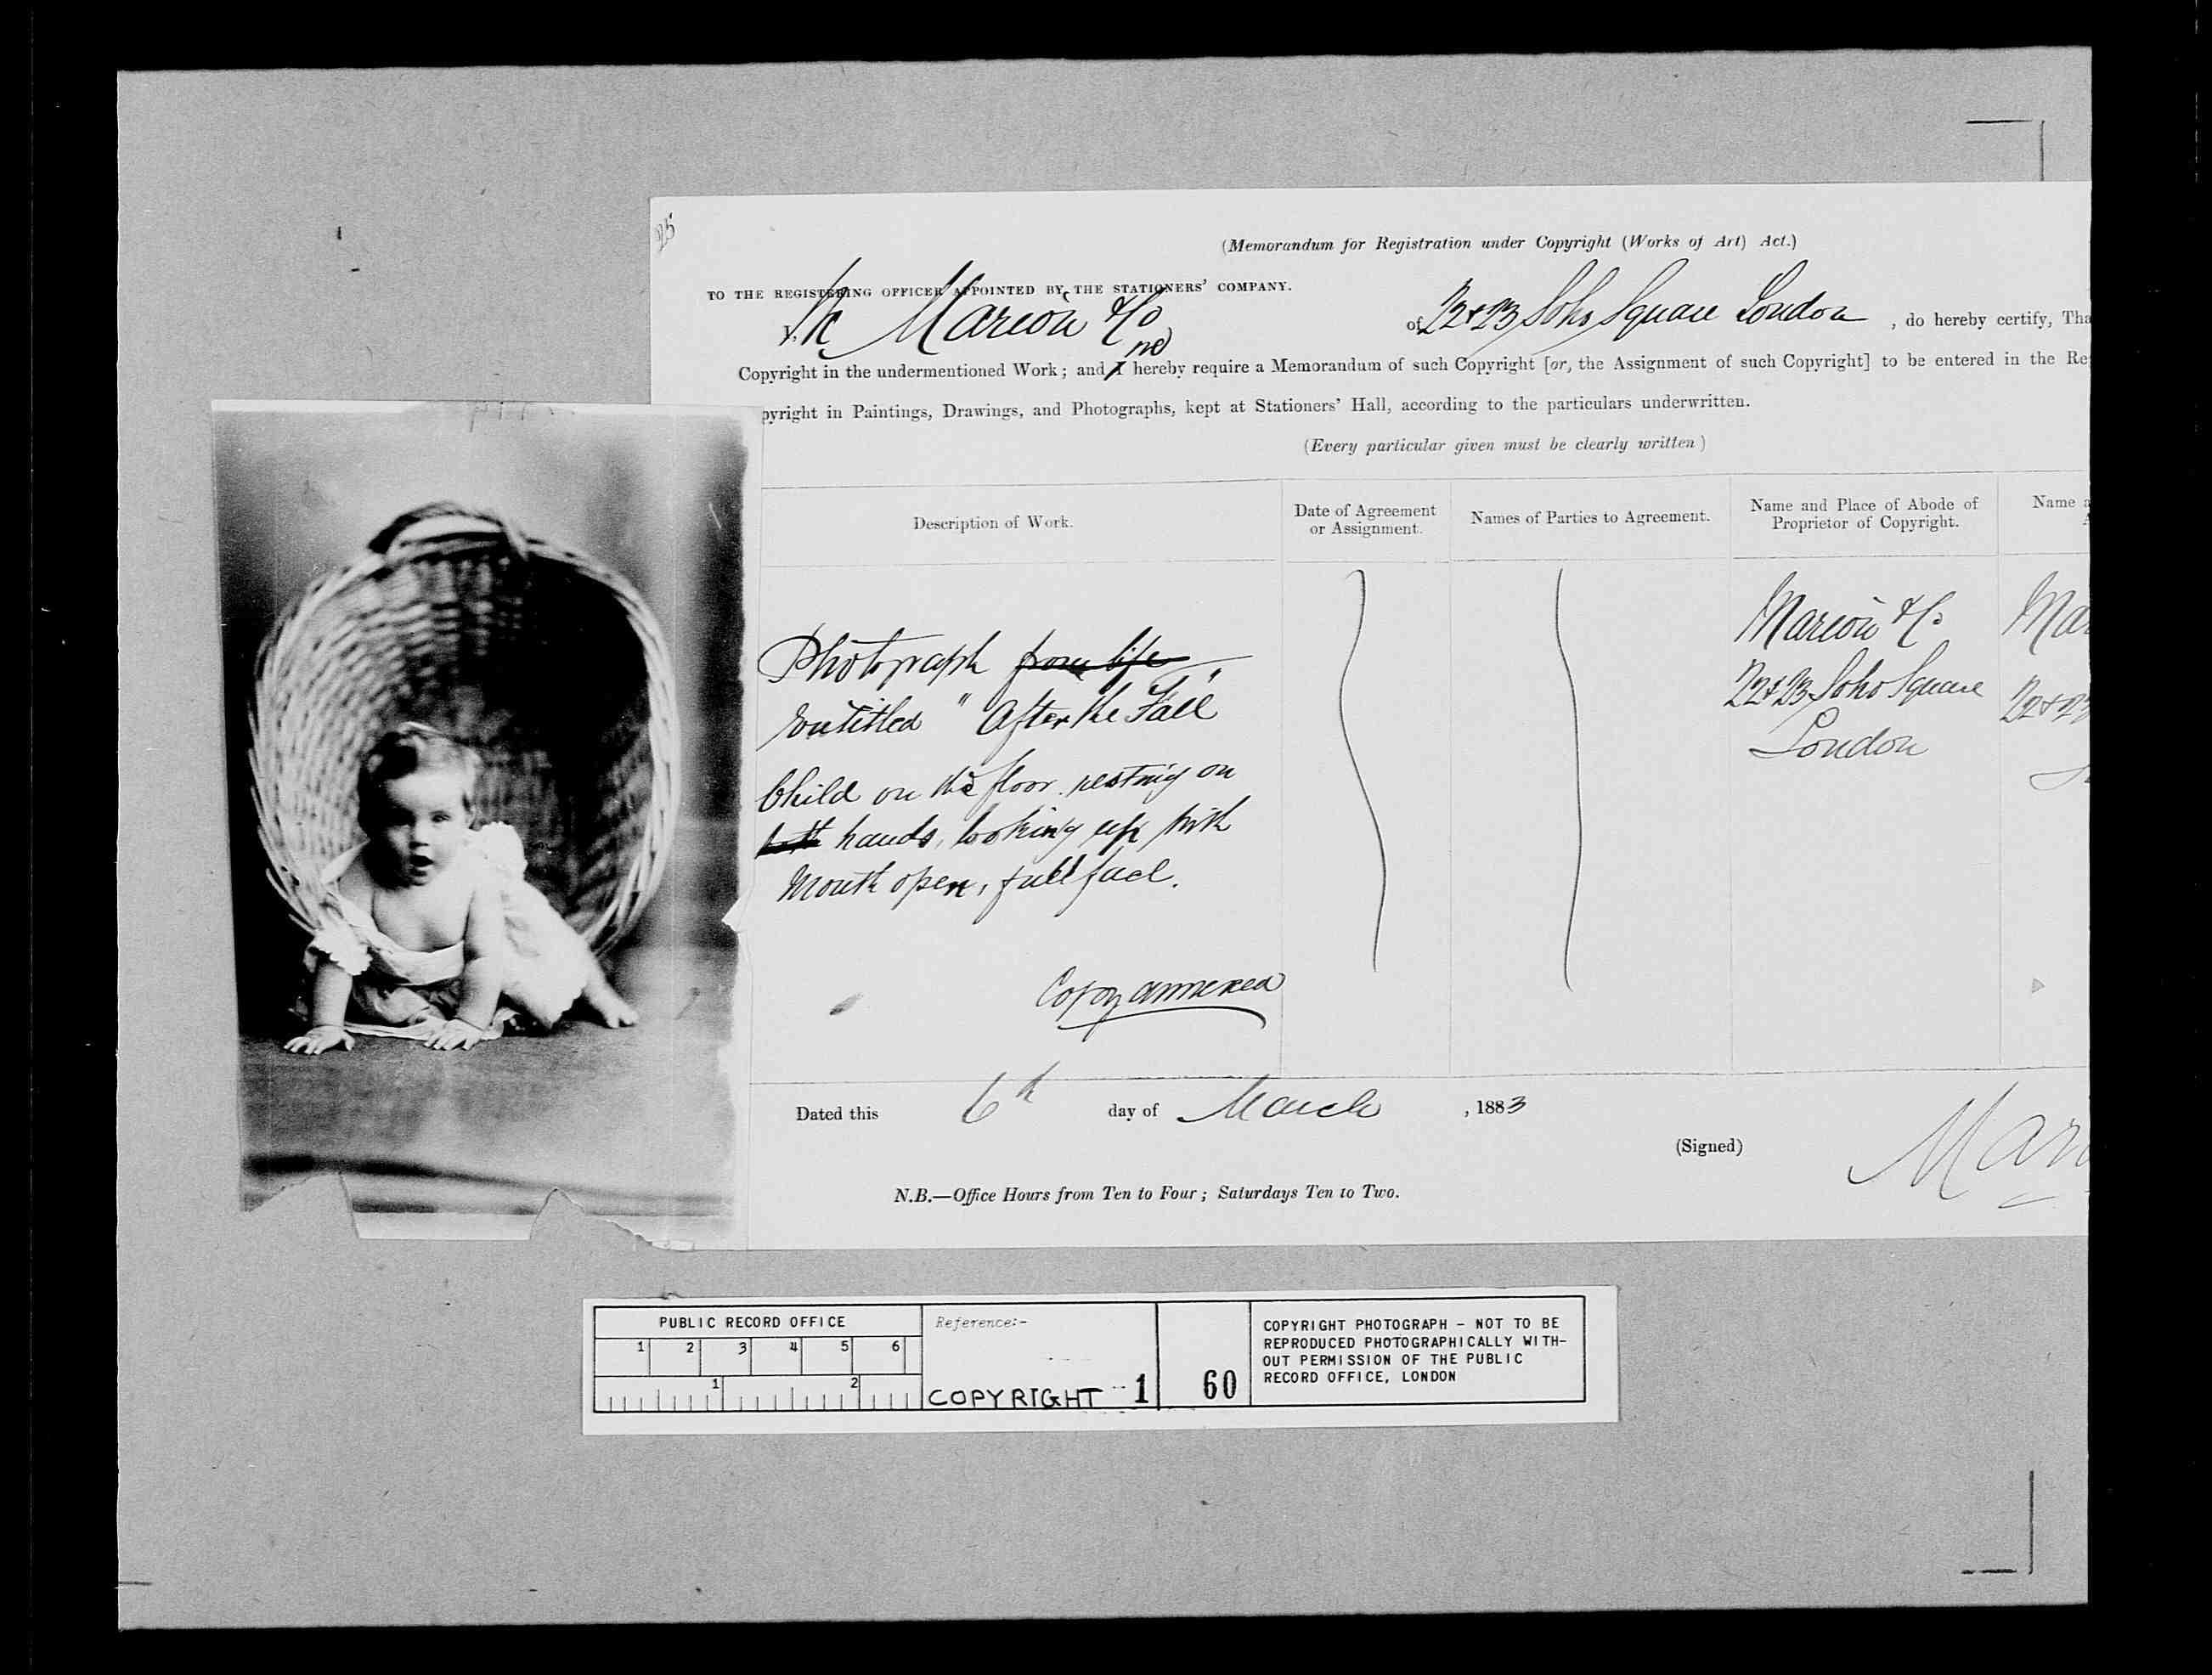 25
(Memorandum for Registration under Copyright (Works of Art) Act.)
TO THE REGISTERING OFFICER APPOINTED BY THE STATIONERS' COMPANY.
I, We Marion & Co of 22 & 23 Soho Square London , do hereby certify, Tha
we
Copyright in the undermentioned Work ; and I hereby require a Memorandum of such Copyright [or, the Assignment of such Copyright] to be entered in the Re
pyright in Paintings, Drawings, and Photographs, kept at Stationers' Hall, according to the particulars underwritten.
(Every particular given must be clearly written)
Description of Work.
Date of Agreement
or Assignment.
Names of Parties to Agreement.
Name and Place of Abode of
Proprietor of Copyright.
Name a
A
Photograph from life
Entitled "After the Fall"
Child on the floor resting on
both hands, looking up with
mouth open, full face.
Copy annexed
Marion & Co
22 & 23 Soho Square
London
Mar
22 & 23
Dated this 6th day of March , 1883
(Signed) Mari
N.B.—Office Hours from Ten to Four ; Saturdays Ten to Two.
PUBLIC RECORD OFFICE
1 2 3 4 5 6
1 2
Reference:-
COPYRIGHT 1
60
COPYRIGHT PHOTOGRAPH - NOT TO BE
REPRODUCED PHOTOGRAPHICALLY WITH-
OUT PERMISSION OF THE PUBLIC
RECORD OFFICE, LONDON